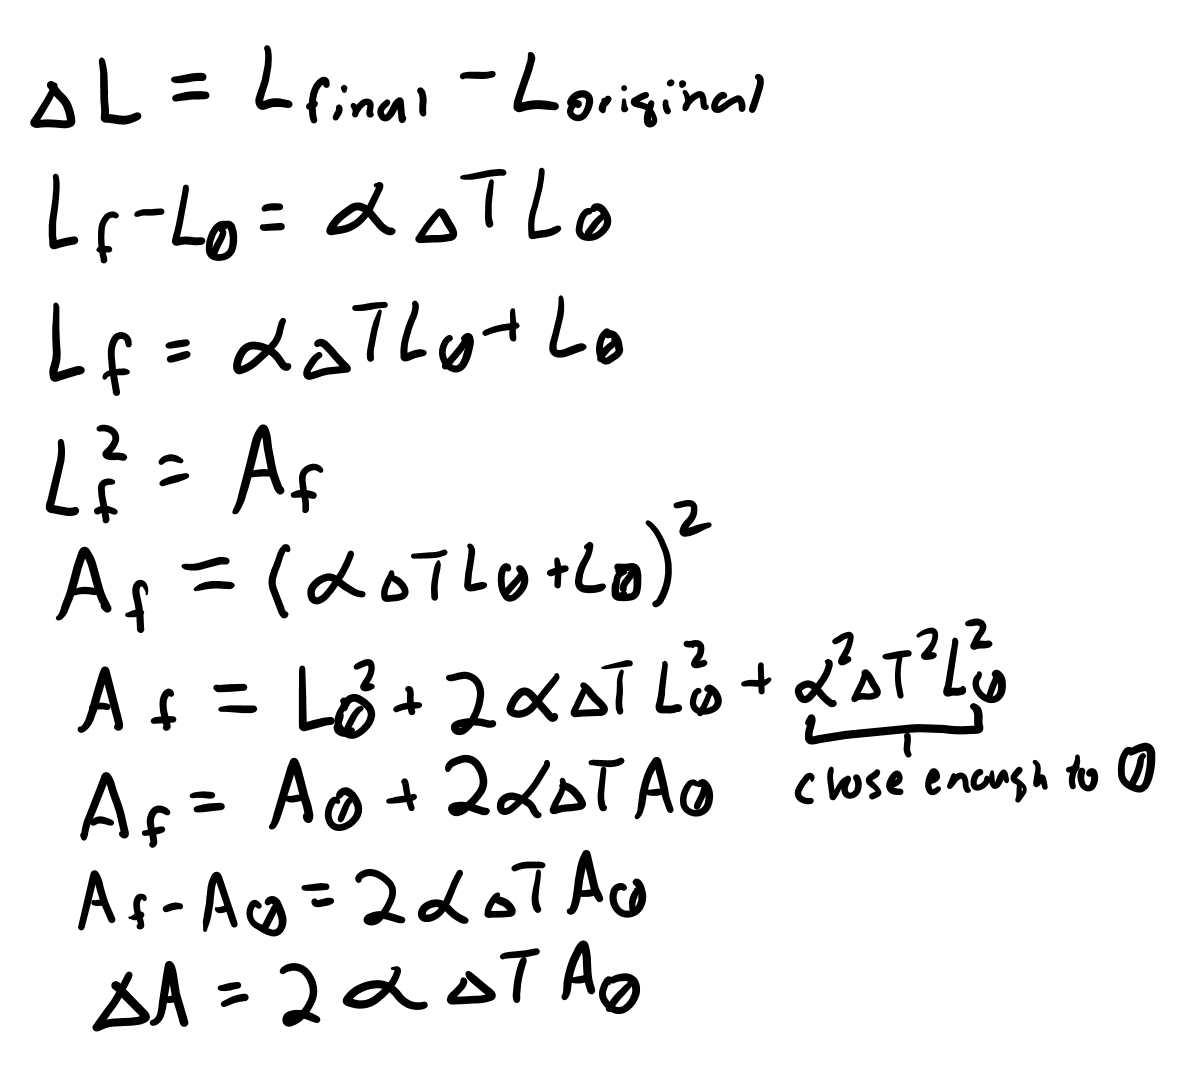 ΔL = L_final - L_original
L_f - L_0 = αΔTL_0
L_f = αΔTL_0 + L_0
L_f^2 = A_f
A_f = (αΔTL_0 + L_0)^2
A_f = L_0^2 + 2αΔTL_0^2 + α^2ΔT^2L_0^2
close enough to 0
A_f = A_0 + 2αΔTA_0
A_f - A_0 = 2αΔTA_0
ΔA = 2αΔTA_0